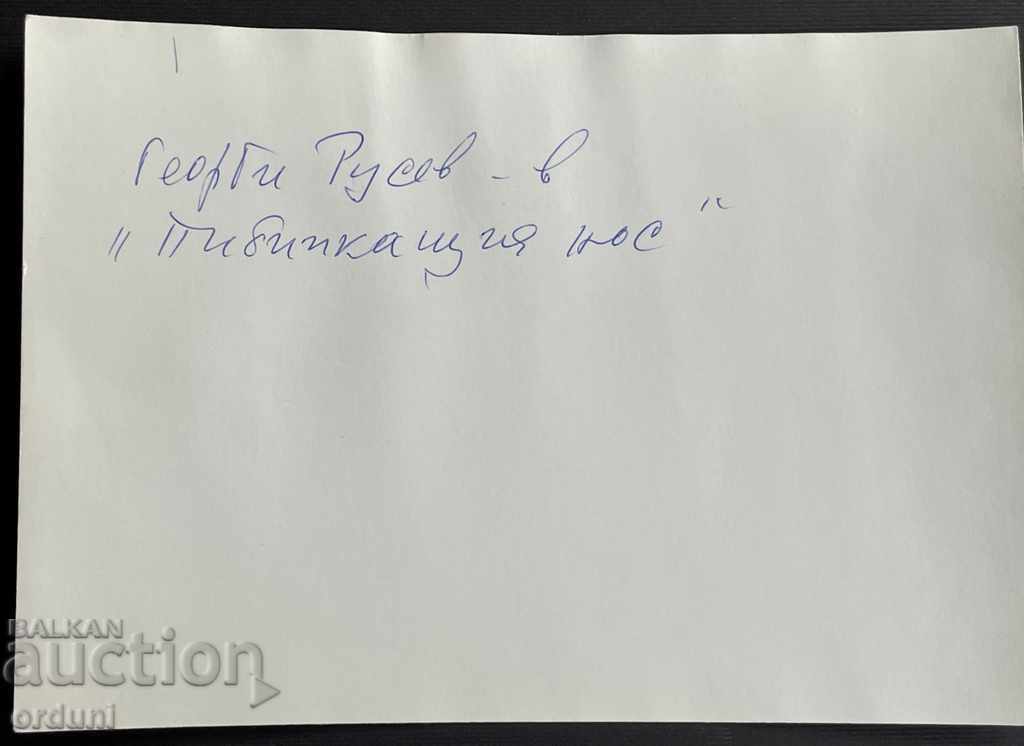 Георги Русев - в
„Пибипкащия нос"
BALKAN
auction
orduni